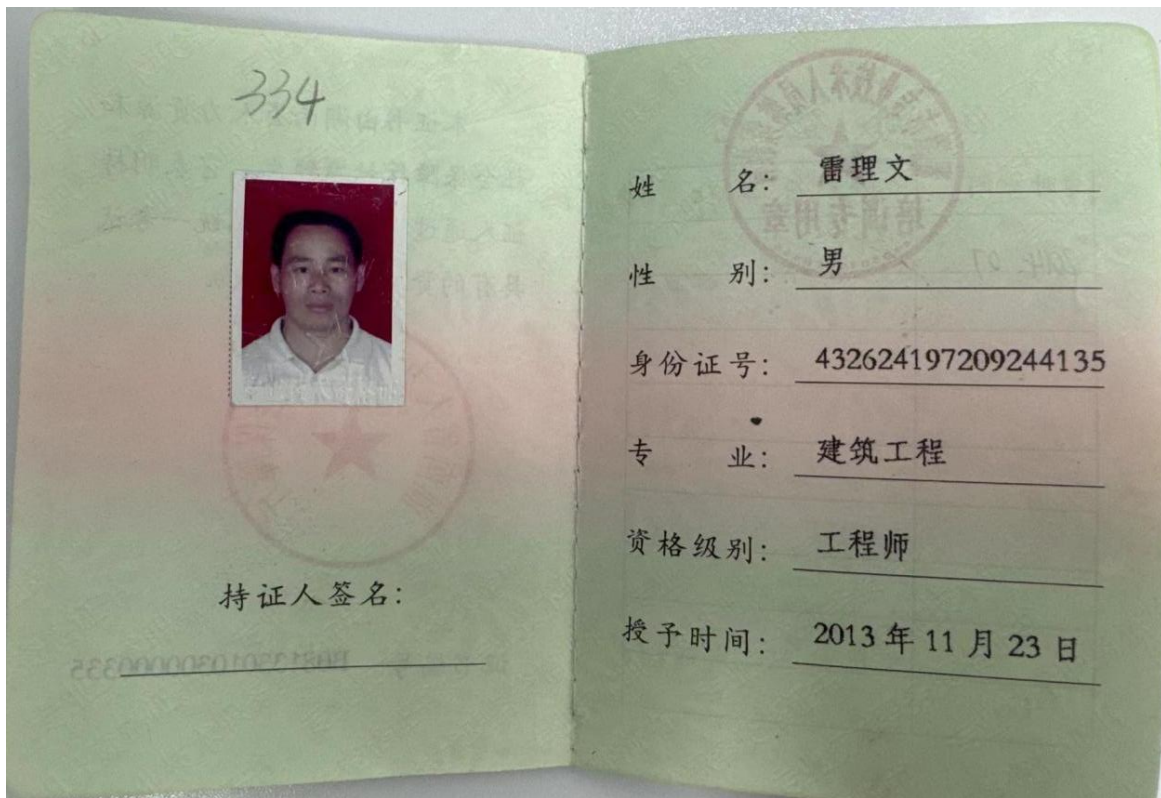 334
持证人签名:
姓名: 雷理文
性别: 男
身份证号: 432624197209244135
专业: 建筑工程
资格级别: 工程师
授予时间: 2013 年 11 月 23 日
培训专用章